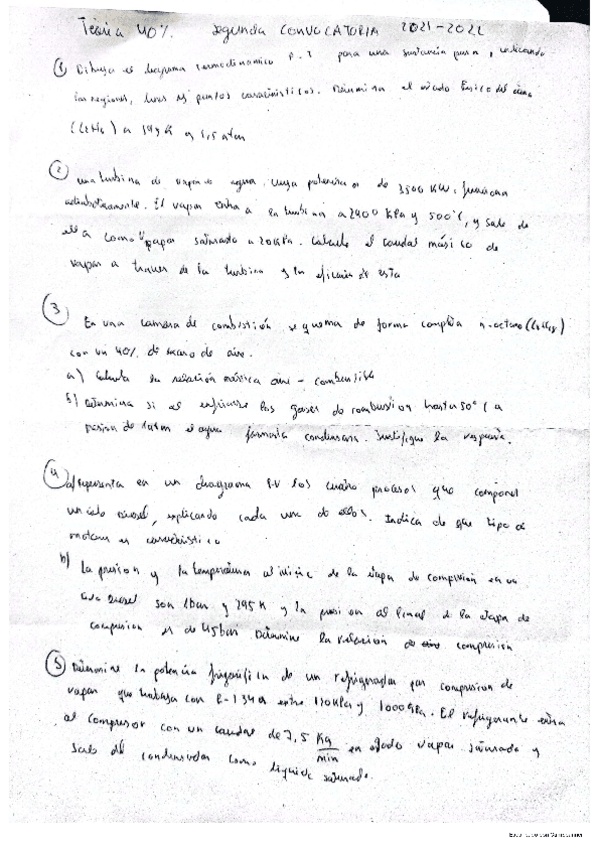 Teoría 40%. Segunda CONVOCATORIA 2021-2022
① Dibuja el diagrama termodinámico P-T para una sustancia pura, indicando
las regiones, líneas y puntos característicos. Determina el estado físico del
(C2H6) a y 1,5 atm
② una turbina de vapor de agua cuya potencia es de 3500 KW, funciona
adiabáticamente. El vapor entra a la turbina a 2400 KPa y 500°C, y sale de
ella como vapor saturado a 20KPa. Calcule el caudal másico de
vapor a través de la turbina y la eficacia de esta
③ En una cámara de combustión se quema de forma completa n-octano (C8H18)
con un 40% de exceso de aire.
a) Calcula la relación másica aire - combustible
b) Determina si al enfriarse los gases de combustión hasta 50°C a
presión de 1 atm el agua formada condensará. Justifique la respuesta.
④ a) representa en un diagrama P-V los cuatro procesos que componen
un ciclo diesel, explicando cada uno de ellos. Indica de que tipo de
motores es característico
b) La presion y la temperatura al inicio de la etapa de compresión en un
ciclo Diesel son 1bar y 295K y la presion al final de la etapa de
compresion es de 45bar Determine la relación de compresión
⑤ Determine la potencia frigorífica de un refrigerador por compresión de
vapor que trabaja con R-134a entre KPa y 1000 KPa. El refrigerante entra
al compresor con un caudal de 7,5 Kg/min en estado vapor saturado y
sale del condensador como líquido saturado.